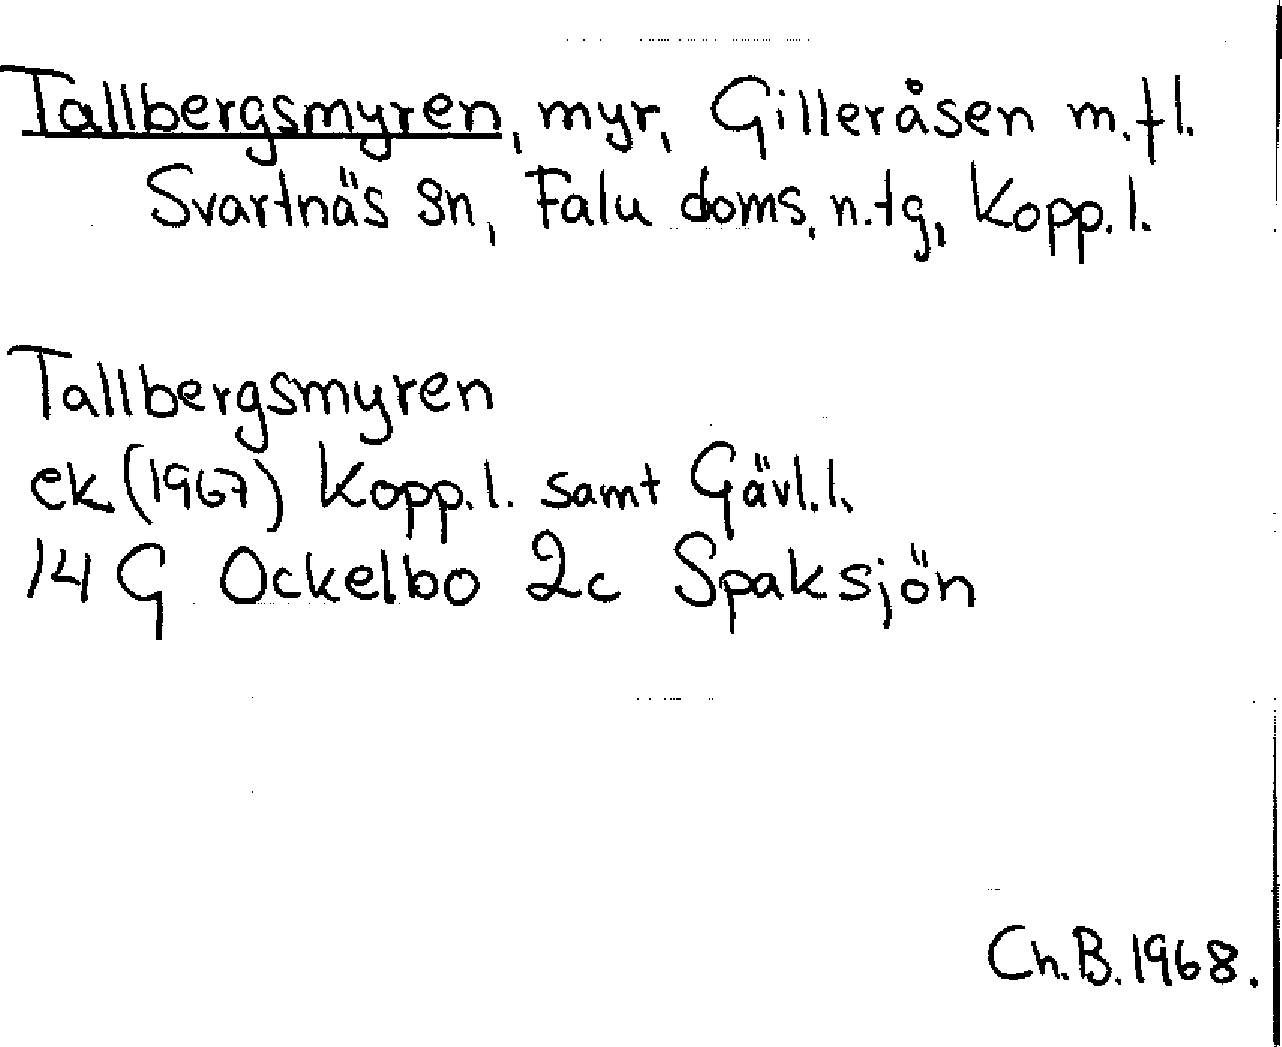 Tallbergsmyren, myr, Gilleråsen m.fl.
Svartnäs sn, Falu doms. n.tg, Kopp.l.
Tallbergsmyren
ek. (1967) Kopp.l. samt Gävl.l.
14 G Ockelbo 2c Spaksjön
Ch.B.1968.